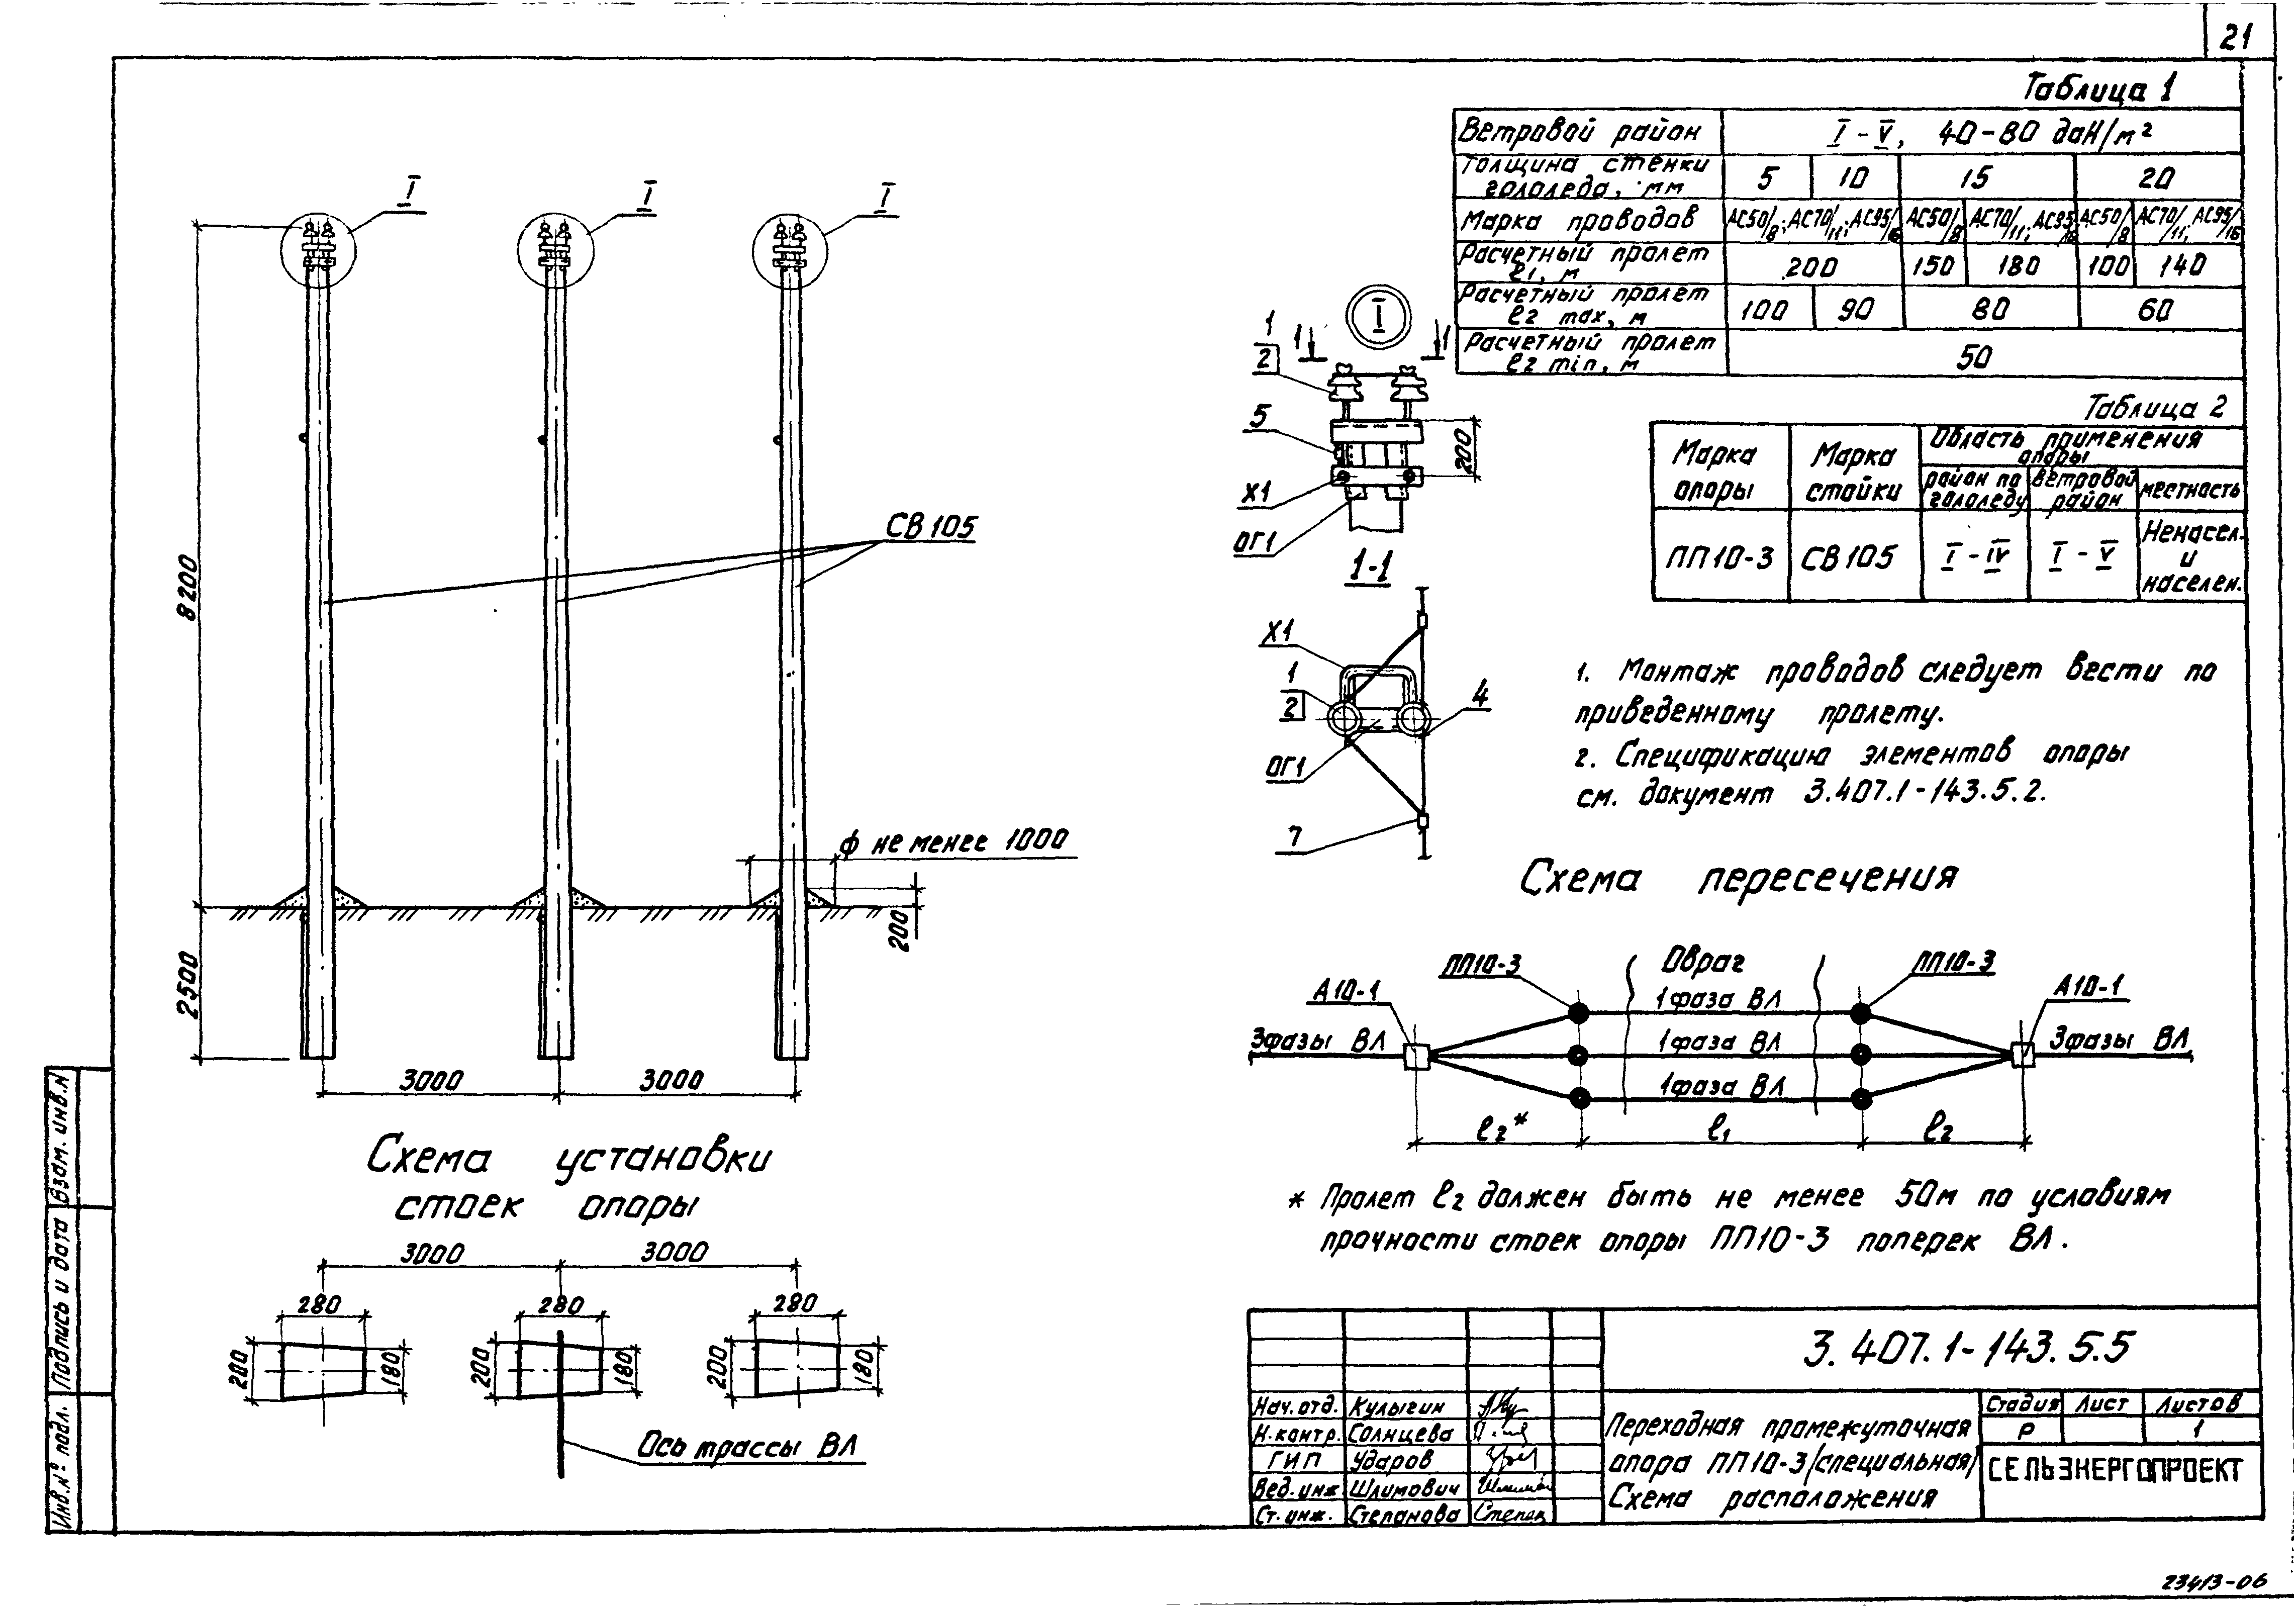 21
Таблица 1
Ветровой район I - V, 40-80 даН/м²
Толщина стенки гололеда, мм 5 10 15 20
Марка проводов АС50/8; АС70/11; АС95/16 АС50/8 АС70/11; АС95/16 АС50/8 АС70/11; АС95/16
Расчетный пролет ℓ1, м 200 150 180 100 140
Расчетный пролет ℓ2 max, м 100 90 80 60
Расчетный пролет ℓ2 min, м 50
Таблица 2
Марка опоры Марка стойки Область применения опоры
район по гололеду ветровой район местность
ПП10-3 СВ105 I - IV I - V Ненасел. и населен.
I
I
I
СВ105
8200
2500
ф не менее 1000
200
3000 3000
I
1 1
1
2
5
200
Х1
ОГ1
1-1
Х1
1
2
4
ОГ1
7
1. Монтаж проводов следует вести по
приведенному пролету.
2. Спецификацию элементов опоры
см. документ 3.407.1-143.5.2.
Схема пересечения
ПП10-3 Овраг ПП10-3
А10-1 1 фаза ВЛ А10-1
3фазы ВЛ 1 фаза ВЛ 3фазы ВЛ
1 фаза ВЛ
ℓ2* ℓ1 ℓ2
* Пролет ℓ2 должен быть не менее 50м по условиям
прочности стоек опоры ПП10-3 поперек ВЛ.
Схема установки
стоек опоры
3000 3000
280 280 280
200 180 200 180 200 180
Ось трассы ВЛ
Взам. инв.№
Подпись и дата
Инв.№ подл.
3.407.1-143.5.5
Нач.отд. Кулыгин
Н.контр. Солнцева
ГИП Ударов
Вед.инж Шлимович
Ст.инж. Степанова
Переходная промежуточная
опора ПП10-3/специальная/
Схема расположения
Стадия Лист Листов
Р 1
СЕЛЬЭНЕРГОПРОЕКТ
23413-06